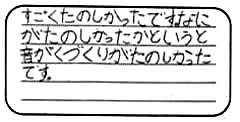 すごくたのしかったですなに
がたのしかったかというと
音がくづくりがたのしかった
です。